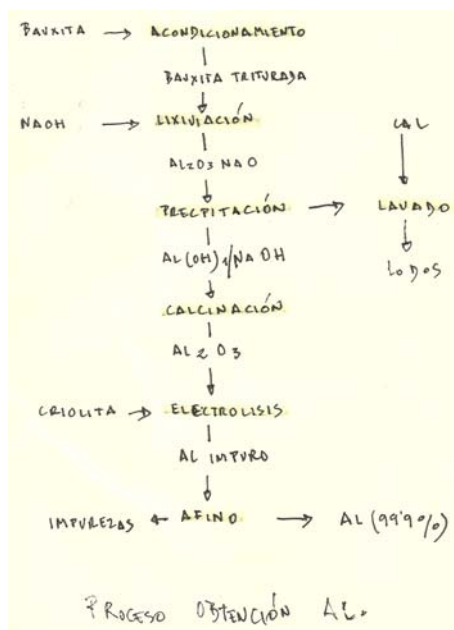 BAUXITA → ACONDICIONAMIENTO
BAUXITA TRITURADA
NAOH → LIXIVIACIÓN
CAL
AL2O3 NAO
PRECPITACIÓN → LAVADO
AL(OH)4/NA OH
LODOS
CALCINACIÓN
AL2O3
CRIOLITA → ELECTROLISIS
AL IMPURO
IMPUREZAS ← AFINO → AL (99'9%)
PROCESO OBTENCIÓN AL.